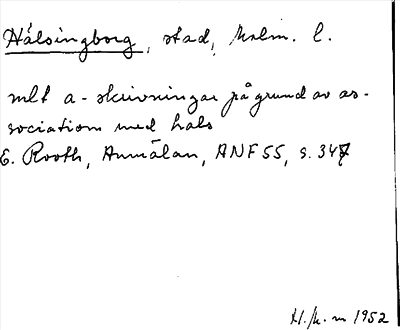 Hälsingborg, stad, Malm. l.
mlt a-skrivningar på grund av as-
sociation med hals
E. Rooth, Anmälan, ANF 55, s. 347
1952